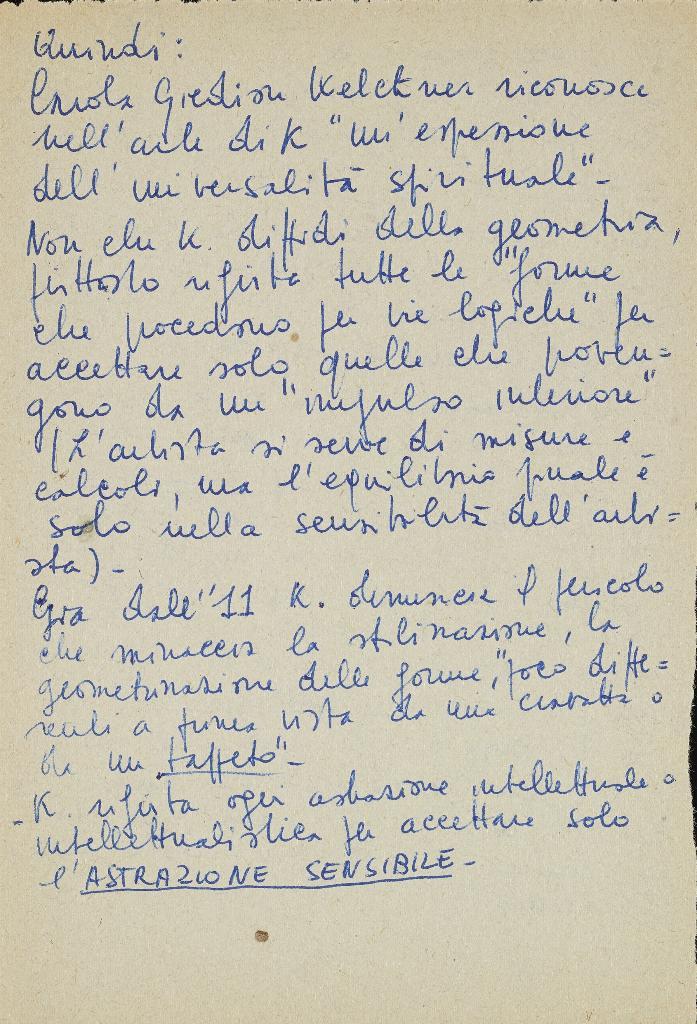 Quindi:
Carola Giedion Welckner riconosce
nell'arte di K "un'espressione
dell'universalità spirituale"-
Non che K. diffidi della geometria,
piuttosto rifiuta tutte le "forme
che procedono per vie logiche" per
accettare solo quelle che proven=
gono da un "impulso interiore"
(L'artista si serve di misure e
calcoli, ma l'equilibrio finale è
solo nella sensibilità dell'arti=
sta)-
Già dall'11 K. denuncia il pericolo
che minaccia la stilizzazione, la
geometrizzazione delle forme, "poco diffe=
renti a prima vista da una cravatta o
da un tappeto"-
- K. rifiuta ogni astrazione intellettuale o
intellettualistica per accettare solo
l'ASTRAZIONE SENSIBILE-